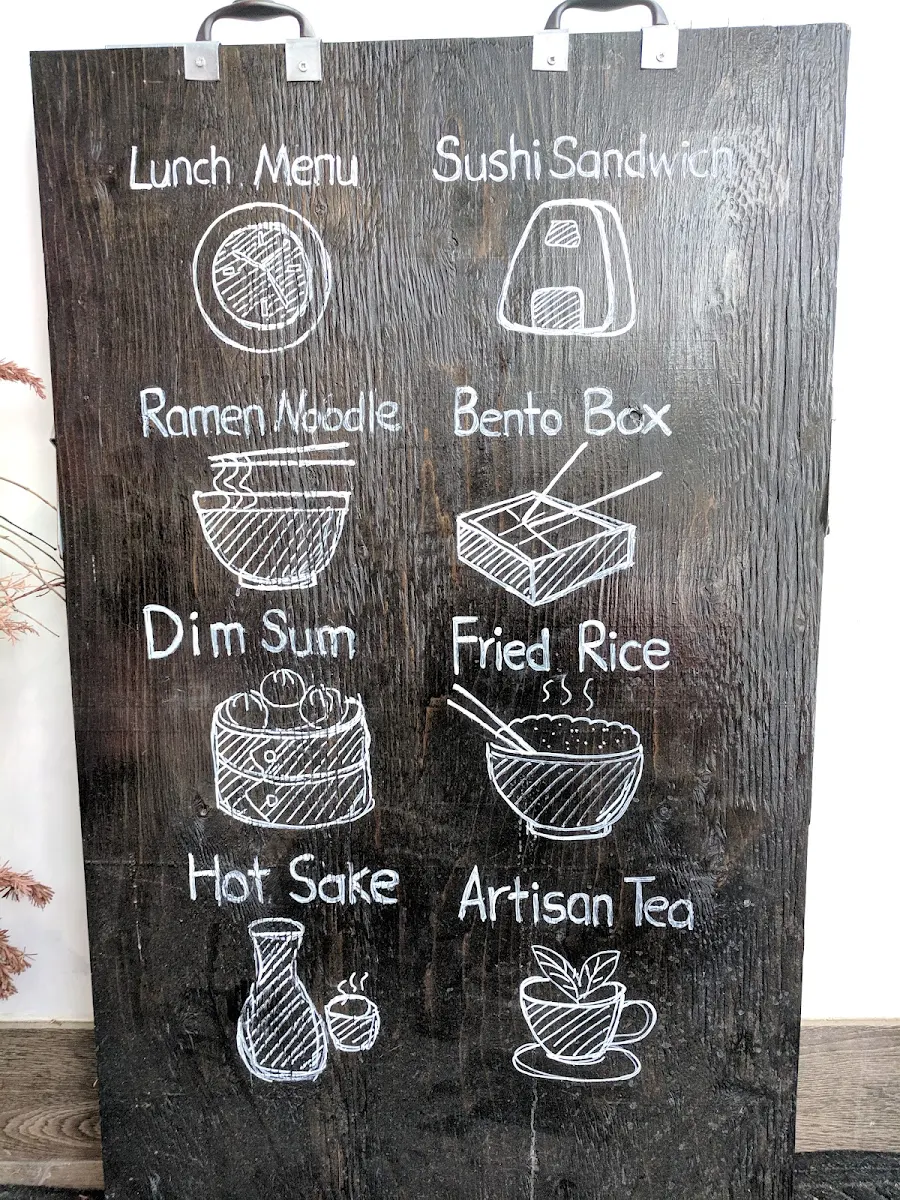 Lunch Menu
Sushi Sandwich
Ramen Noodle
Bento Box
Dim Sum
Fried Rice
Hot Sake
Artisan Tea